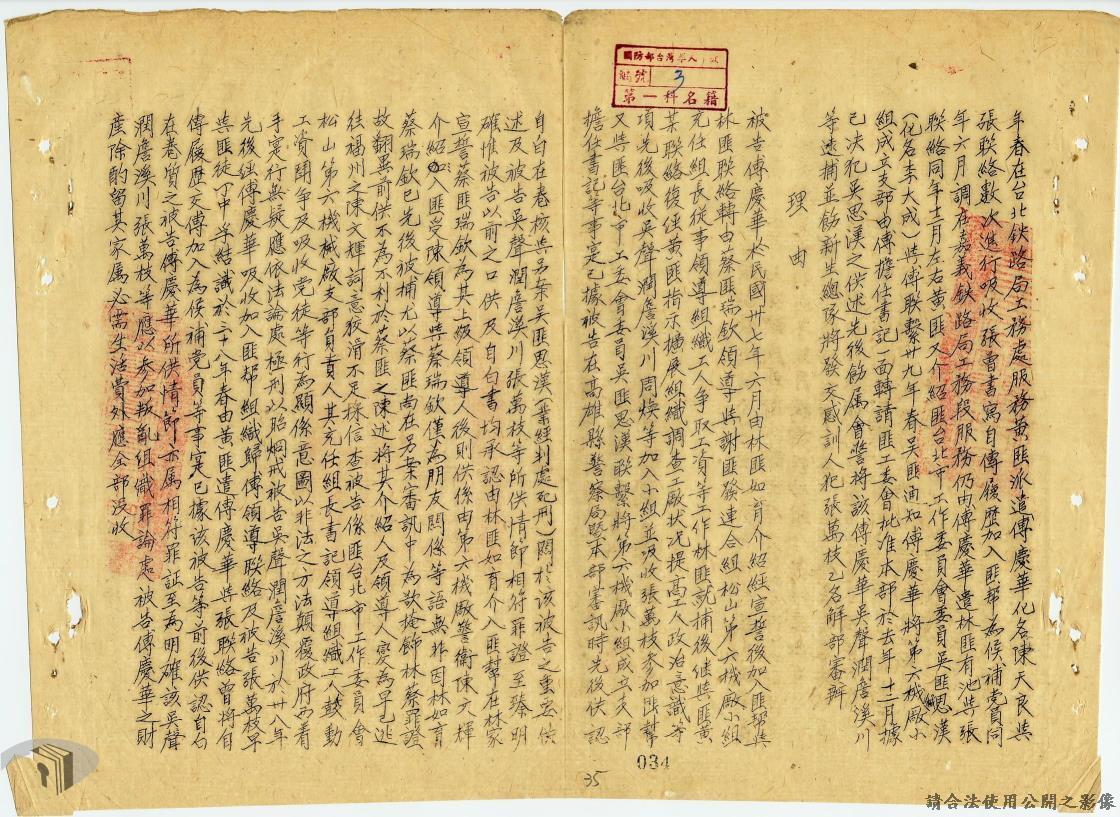 國防部台灣軍人
編號 3
第一科名籍
年春在台北鉄路局工務處服務黄匪派遣傅慶華化名陳天良與
張联絡數次進行吸收張曾書寫自傳履歷加入匪帮為候補党員同
年六月調在嘉義鉄路局工務段服務仍由傅慶華遣林匪有池與張
联絡同年十二月左右黄匪又介紹匪台北市工作委員會委員吳匪思漢
(化名李大成)與傅联繫卅九年春吳匪通知傅慶華將第六機廠小
組成立支部由傅擔任書記一面轉請匪工委會批准本部於去年十二月據
已决犯吳思漢之供述先後飭属會警将該傅慶華吳聲潤詹溪川
等逮捕並飭新生總隊將發交感訓人犯張萬枝乙名解部審辦
理由
被告傅慶華於民國卅七年六月由林匪如育介紹經宣誓後加入匪帮與
林匪联絡轉由蔡匪瑞欽領導與謝匪發連合組松山第六機廠小組
充任組長從事領導組織工人争取工資等工作林匪就捕後继與匪黄
某联絡復经黄匪指示擴展組織調查工廠状况提高工人政治意識等
項先後吸收吳聲潤詹溪川周煥等加入小組並吸收張萬枝参加匪幫
又與匪台北市工委會委員吳匪思漢联繫將第六機廠小組成立支部
擔任書記等事寔已據被告在高雄縣警察局暨本部審訊時先後供認
自白在卷核與另案吳匪思漢(業經判處死刑)関於該被告之重要供
述及被告吳聲潤詹溪川張萬枝等所供情節相符罪證至臻明
確惟被告以前之口供及自白書均承認由林匪如育介入匪幫在林家
宣誓蔡匪瑞欽為其上級領導人後則供係由第六機廠警衛陳文輝
介紹入匪受陳領導與蔡瑞欽僅為朋友関係等語無非因林如育
蔡瑞欽已先後被捕尤以蔡匪尚在另案審訊中為欲掩飾林蔡罪證
故翻異前供不為不利於蔡匪之陳述将其介紹人及領導人變為早已逃
往福州之陳文輝詞意狡滑不足採信查被告係匪台北市工作委員會
松山第六機械廠支部負責人其充任組長書記領導組織工人鼓動
工資鬪争及吸收党徒等行為顯係意圖以非法之方法顛覆政府而着
手寔行無疑應依法論處極刑以昭烱戒被告吳聲潤詹溪川於卅八年
先後经傅慶華吸收加入匪帮組織歸傅領導联絡及被告張萬枝早
與匪徒丁中一等結識於三十八年春由黄匪遣傅慶華與張联絡曾将自
傳履歷交傅加入為候補党員等事寔已據該被告等前後供認自白
在卷質之被告傅慶華所供情節亦属相符罪証至為明確該吳聲
潤詹溪川張萬枝等應以参加叛乱組織罪論處被告傅慶華之財
産除酌留其家属必需生活費外應全部没收
034
35
請合法使用公開之影像